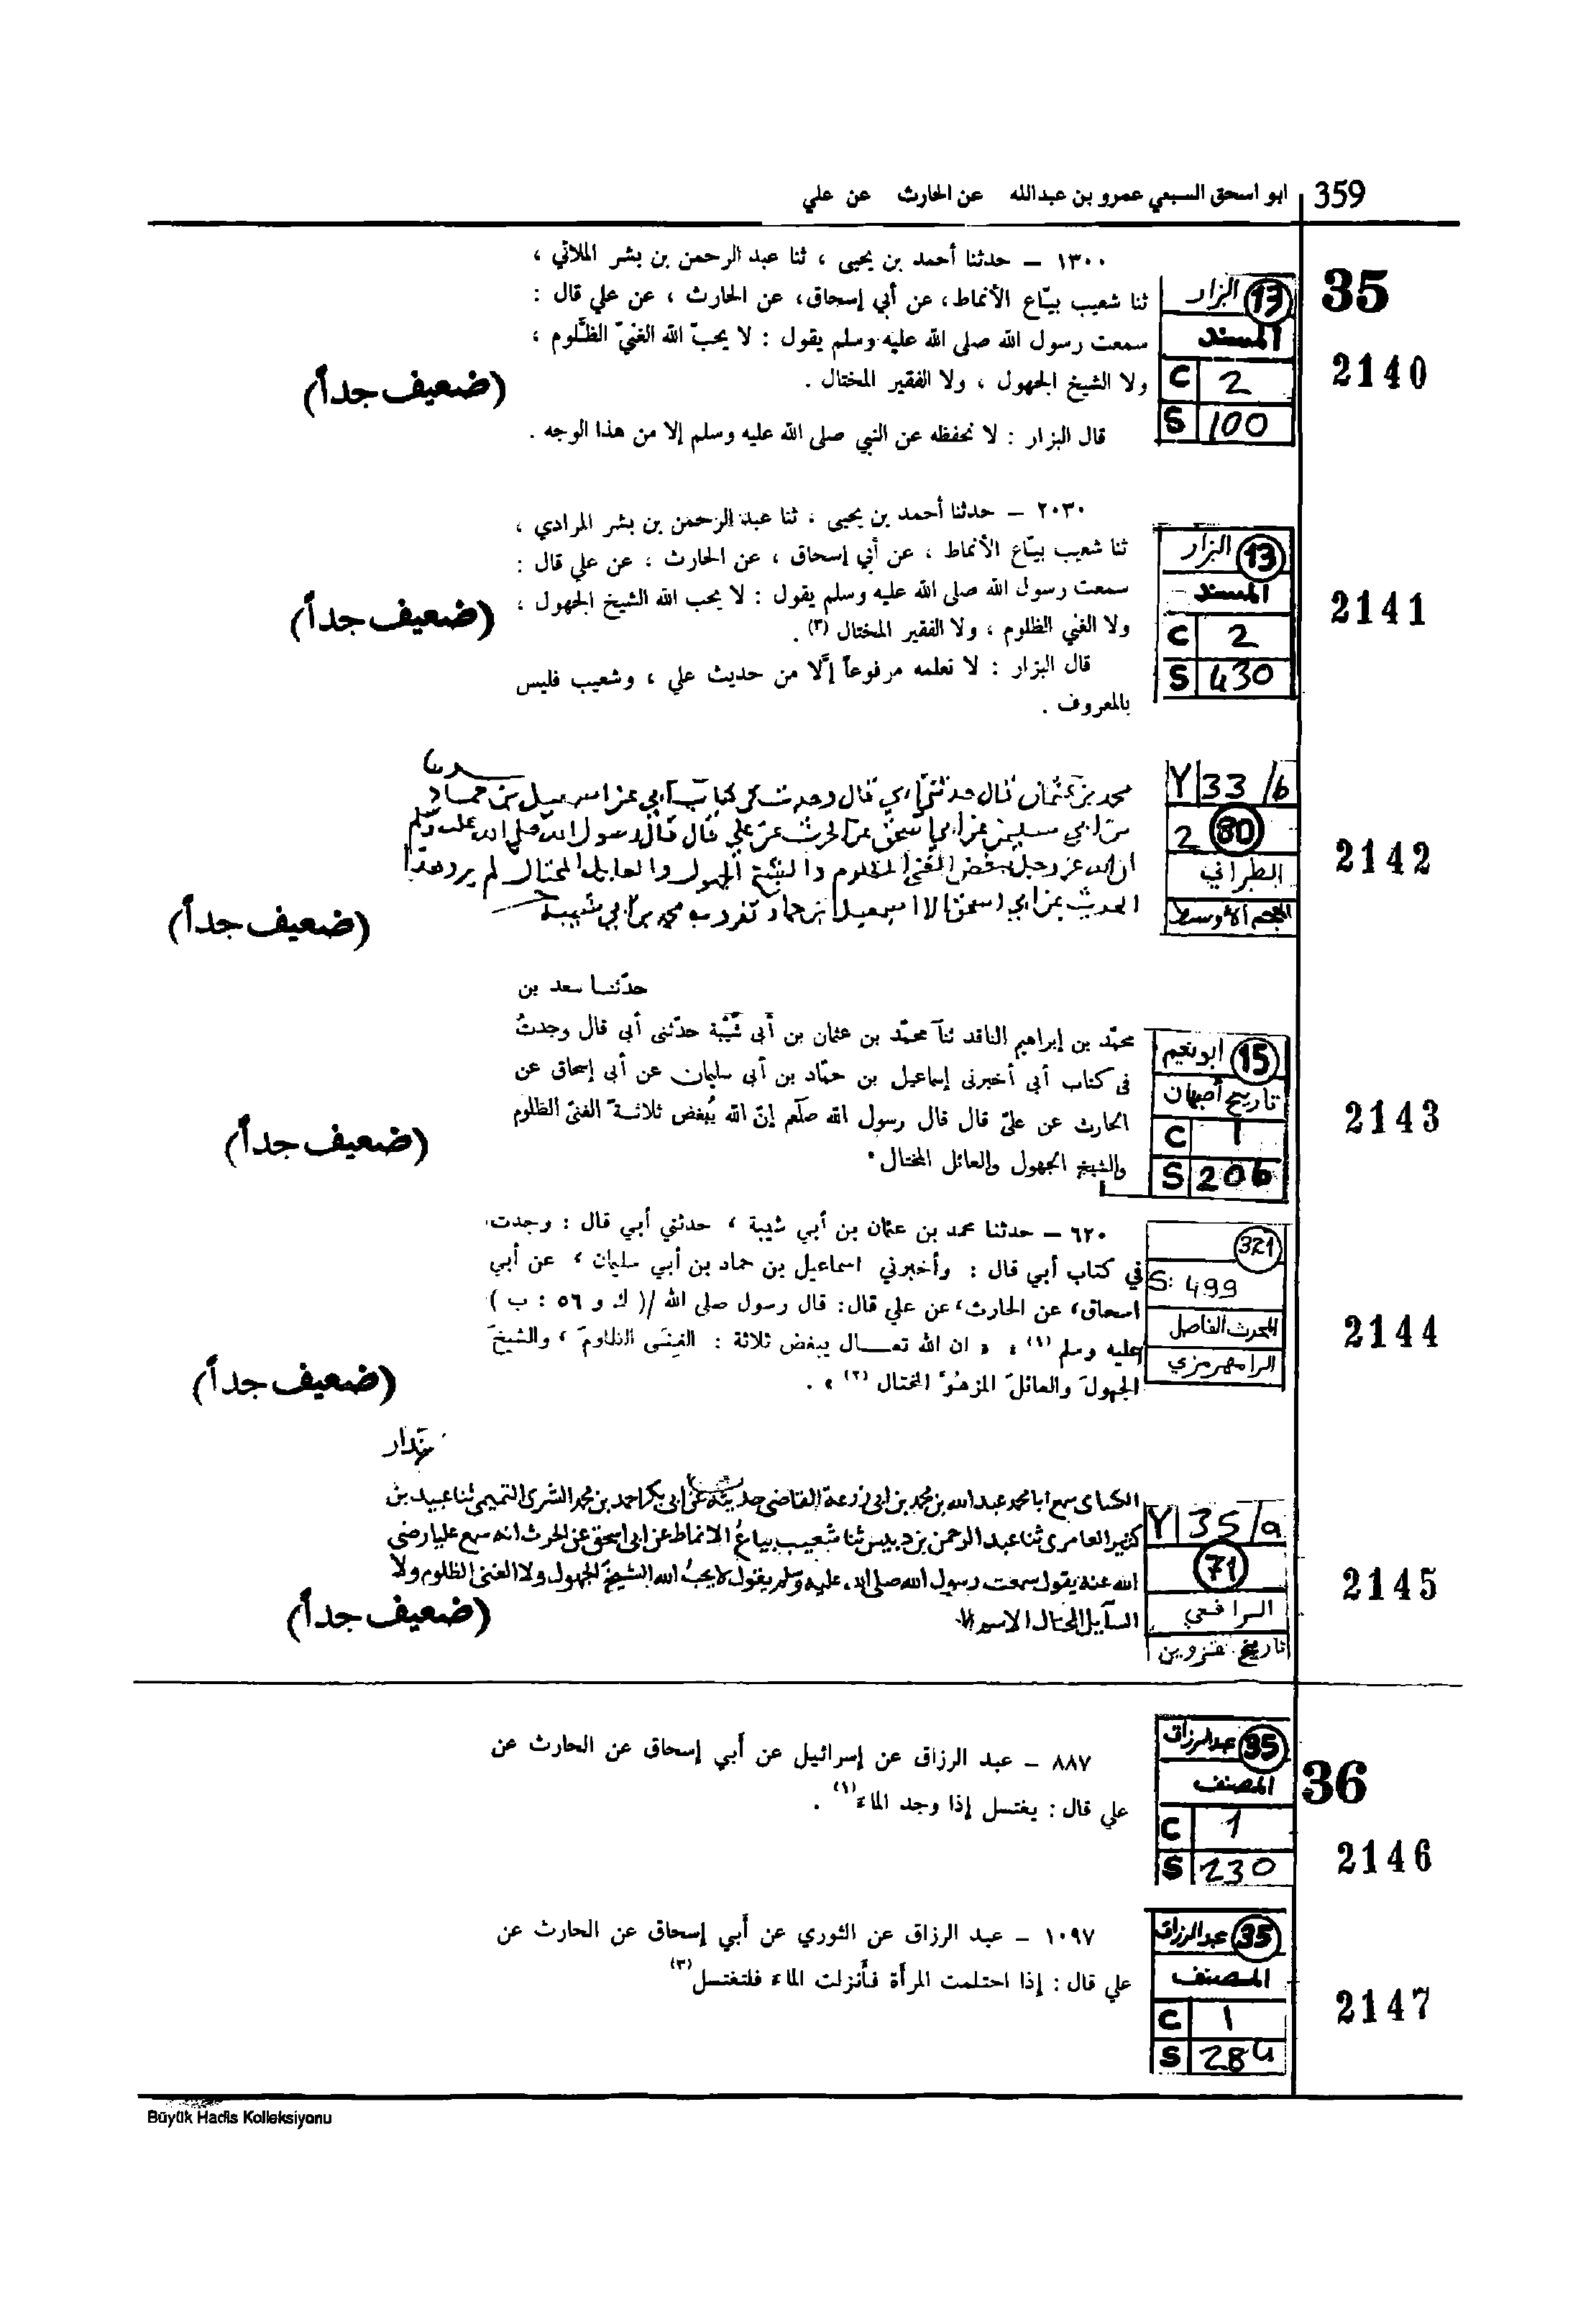 359 ابو اسحق السبعي عمرو بن عبدالله عن الحارث عن علي
35
2140
13 البزار
المسند
C 2
S 100
١٣٠٠ – حدثنا أحمد بن يحيى ، ثنا عبد الرحمن بن بشر الملائي ،
ثنا شعيب بيّاع الأنماط، عن أبي إسحاق، عن الحارث ، عن علي قال :
سمعت رسول الله صلى الله عليه وسلم يقول : لا يحبّ الله الغنيّ الظَّلوم ،
ولا الشيخ الجهول ، ولا الفقير المختال .
(ضعيف جداً)
قال البزار : لا نحفظه عن النبي صلى الله عليه وسلم إلا من هذا الوجه .
2141
13 البزار
المسند
C 2
S 430
٢٠٣٠ – حدثنا أحمد بن يحيى ، ثنا عبد الرحمن بن بشر المرادي ،
ثنا شعيب بيّاع الأنماط ، عن أبي إسحاق ، عن الحارث ، عن علي قال :
سمعت رسول الله صلى الله عليه وسلم يقول : لا يحب الله الشيخ الجهول ،
ولا الغني الظلوم ، ولا الفقير المختال (٣) .
(ضعيف جداً)
قال البزار : لا نعلمه مرفوعاً إلَّا من حديث علي ، وشعيب فليس
بالمعروف .
2142
Y 33/b
2 80
الطبراني
المعجم الأوسط
محمد بن عثمان قال حدثني ابي قال وجدت في كتاب ابي عن اسمعيل بن حماد
بن ابي سليمن عن ابي اسحق عن الحرث عن علي قال قال رسول الله صلى الله عليه وسلم
ان الله عز وجل يبغض الغني الظلوم والشيخ الجهول والعايل المختال لم يرو هذا
الحديث عن ابي اسحق الا اسمعيل بن حماد تفرد به محمد بن ابي شيبة
(ضعيف جداً)
2143
15 ابو نعيم
تاريخ أصبهان
C 1
S 206
حدّثنا سعد بن
محمّد بن إبراهيم الناقد ثنا محمّد بن عثمان بن أبى شَيْبة حدّثنى أبى قال وجدتُ
فى كتاب أبى أخبرنى إسماعيل بن حمّاد بن أبى سليمان عن أبى إسحاق عن
الحارث عن علىّ قال قال رسول الله صلّعم إنّ الله يُبغض ثلاثة الغنىّ الظلوم
والشيخ الجهول والعائل المختال
(ضعيف جداً)
2144
321
S: 499
المحدث الفاصل
الرامهرمزي
٦٢٠ – حدثنا محمد بن عثمان بن أبي شيبة ، حدثني أبي قال : وجدت
في كتاب أبي قال : وأخبرني اسماعيل بن حماد بن أبي سليمان ، عن أبي
اسحاق، عن الحارث، عن علي قال: قال رسول صلى الله /( ك و ٥٦ : ب )
عليه وسلم (١) : « ان الله تعالى يبغض ثلاثة : الغني الظلومَ ، والشيخَ
الجهولَ والعائلَ المزهُوَّ المختال (٢) » .
(ضعيف جداً)
2145
Y 35/a
71
الرافعي
تاريخ قزوين
بندار
الكناى سمع ابا محمد عبد الله بن محمد بن ابى زرعة القاضى حديثه عن ابى بكر احمد بن محمد الشرى التميمى ثنا عبيد بن
كثير العامرى ثنا عبد الرحمن بن دبيس ثنا شعيب بياع الانماط عن ابى اسحق عن الحرث انه سمع عليا رضى
الله عنه يقول سمعت رسول الله صلى الله عليه وسلم يقول لا يحب الله الشيخ الجهول ولا الغنى الظلوم ولا
السآيل المختال
(ضعيف جداً)
36
2146
35 عبد الرزاق
المصنف
C 1
S 230
٨٨٧ – عبد الرزاق عن إسرائيل عن أبي إسحاق عن الحارث عن
علي قال : يغتسل إذا وجد الماء(١) .
2147
35 عبد الرزاق
المصنف
C 1
S 284
١٠٩٧ – عبد الرزاق عن الثوري عن أبي إسحاق عن الحارث عن
علي قال : إذا احتلمت المرأة فأنزلت الماء فلتغتسل(٣)
Büyük Hadis Kolleksiyonu